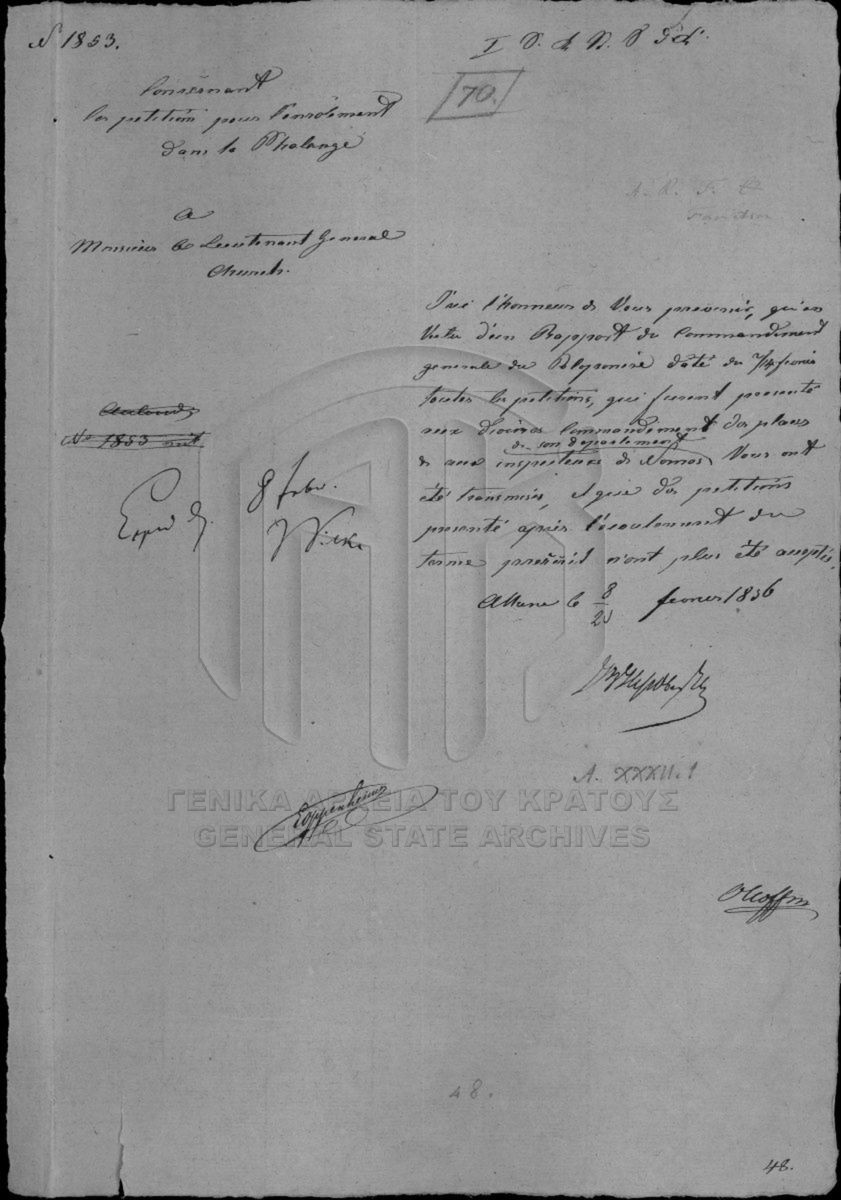 N 1853.
Concernant
les petitions pour l'enrôlement
dans la Phalange
A
Monsieur le Lieutenant General
Church.
No 1853
8 febr.
70.
J'ai l'honneur de Vous prevenir, qu'en
Vertu d'un Rapport du Commandement
generale du Peloponèse daté du 2/14 fevrier
toutes les petitions, qui furent presenté
aux divers Commandement des places
de son departement
& aux inspecteurs de Nomos Vous ont
été transmises, & que des petitions
presenté après l'écoulement du
terme prescrit n'ont plus été accepté.
Athene le 8/20 fevrier 1836
A. XXXII. 1
ΓΕΝΙΚΑ ΑΡΧΕΙΑ ΤΟΥ ΚΡΑΤΟΥΣ
GENERAL STATE ARCHIVES
48.
48.